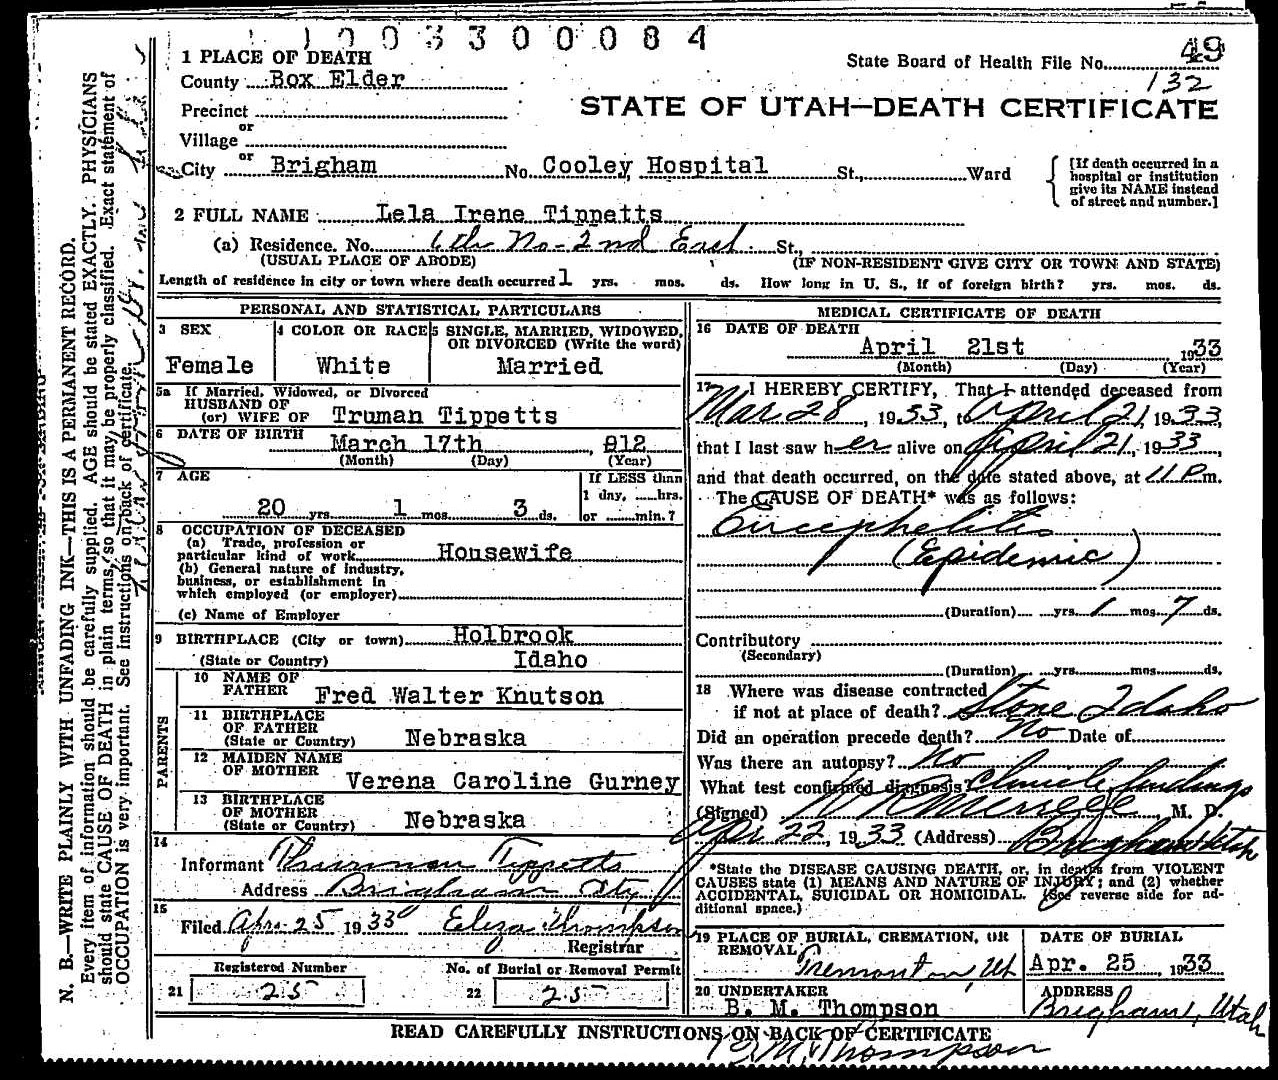 1 0 0 3 3 0 0 0 8 4
49
1 PLACE OF DEATH
State Board of Health File No.
132
County Box Elder
STATE OF UTAH—DEATH CERTIFICATE
Precinct
or
Village
or
City Brigham No. Cooley Hospital St., Ward
[If death occurred in a
hospital or institution
give its NAME instead
of street and number.]
2 FULL NAME Lela Irene Tippetts
(a) Residence. No. 6th No-2nd East St.,
(USUAL PLACE OF ABODE) (IF NON-RESIDENT GIVE CITY OR TOWN AND STATE)
Length of residence in city or town where death occurred 1 yrs. mos. ds. How long in U. S., if of foreign birth? yrs. mos. ds.
PERSONAL AND STATISTICAL PARTICULARS
3 SEX
Female
4 COLOR OR RACE
White
5 SINGLE, MARRIED, WIDOWED,
OR DIVORCED (Write the word)
Married
5a If Married, Widowed, or Divorced
HUSBAND OF
(or) WIFE OF Truman Tippetts
6 DATE OF BIRTH
March 17th, 912
(Month) (Day) (Year)
7 AGE
20 yrs. 1 mos. 3 ds.
If LESS than
1 day, hrs.
or min.?
8 OCCUPATION OF DECEASED
(a) Trade, profession or
particular kind of work Housewife
(b) General nature of industry,
business, or establishment in
which employed (or employer)
(c) Name of Employer
9 BIRTHPLACE (City or town) Holbrook
(State or Country) Idaho
PARENTS
10 NAME OF
FATHER Fred Walter Knutson
11 BIRTHPLACE
OF FATHER
(State or Country) Nebraska
12 MAIDEN NAME
OF MOTHER Verena Caroline Gurney
13 BIRTHPLACE
OF MOTHER
(State or Country) Nebraska
14
Informant Thurman Tippetts
Address Brigham City
15
Filed Apr. 25 1933 Eliza Thompson
Registrar
Registered Number No. of Burial or Removal Permit
21 25 22 25
MEDICAL CERTIFICATE OF DEATH
16 DATE OF DEATH
April 21st 1933
(Month) (Day) (Year)
17 I HEREBY CERTIFY, That I attended deceased from
Mar 28, 1933, to April 21, 1933,
that I last saw her alive on April 21, 1933,
and that death occurred, on the date stated above, at 11 P. m.
The CAUSE OF DEATH* was as follows:
Encephelitis
(Epidemic)
(Duration) yrs. 1 mos. 7 ds.
Contributory
(Secondary)
(Duration) yrs. mos. ds.
18 Where was disease contracted
if not at place of death? Stone Idaho
Did an operation precede death? No Date of
Was there an autopsy? No
What test confirmed diagnosis? Clinicle findings
(Signed) W R Merrell, M. D.
Apr 22, 1933 (Address) Brigham Utah
*State the DISEASE CAUSING DEATH, or, in deaths from VIOLENT
CAUSES state (1) MEANS AND NATURE OF INJURY; and (2) whether
ACCIDENTAL, SUICIDAL OR HOMICIDAL. (See reverse side for ad-
ditional space.)
19 PLACE OF BURIAL, CREMATION, OR
REMOVAL
Tremonton, Ut
DATE OF BURIAL
Apr. 25, 1933
20 UNDERTAKER
B. M. Thompson
ADDRESS
Brigham, Utah
READ CAREFULLY INSTRUCTIONS ON BACK OF CERTIFICATE
B M Thompson
N. B.—WRITE PLAINLY WITH UNFADING INK—THIS IS A PERMANENT RECORD.
Every item of information should be carefully supplied. AGE should be stated EXACTLY. PHYSICIANS
should state CAUSE OF DEATH in plain terms, so that it may be properly classified. Exact statement of
OCCUPATION is very important. See instructions on back of certificate.